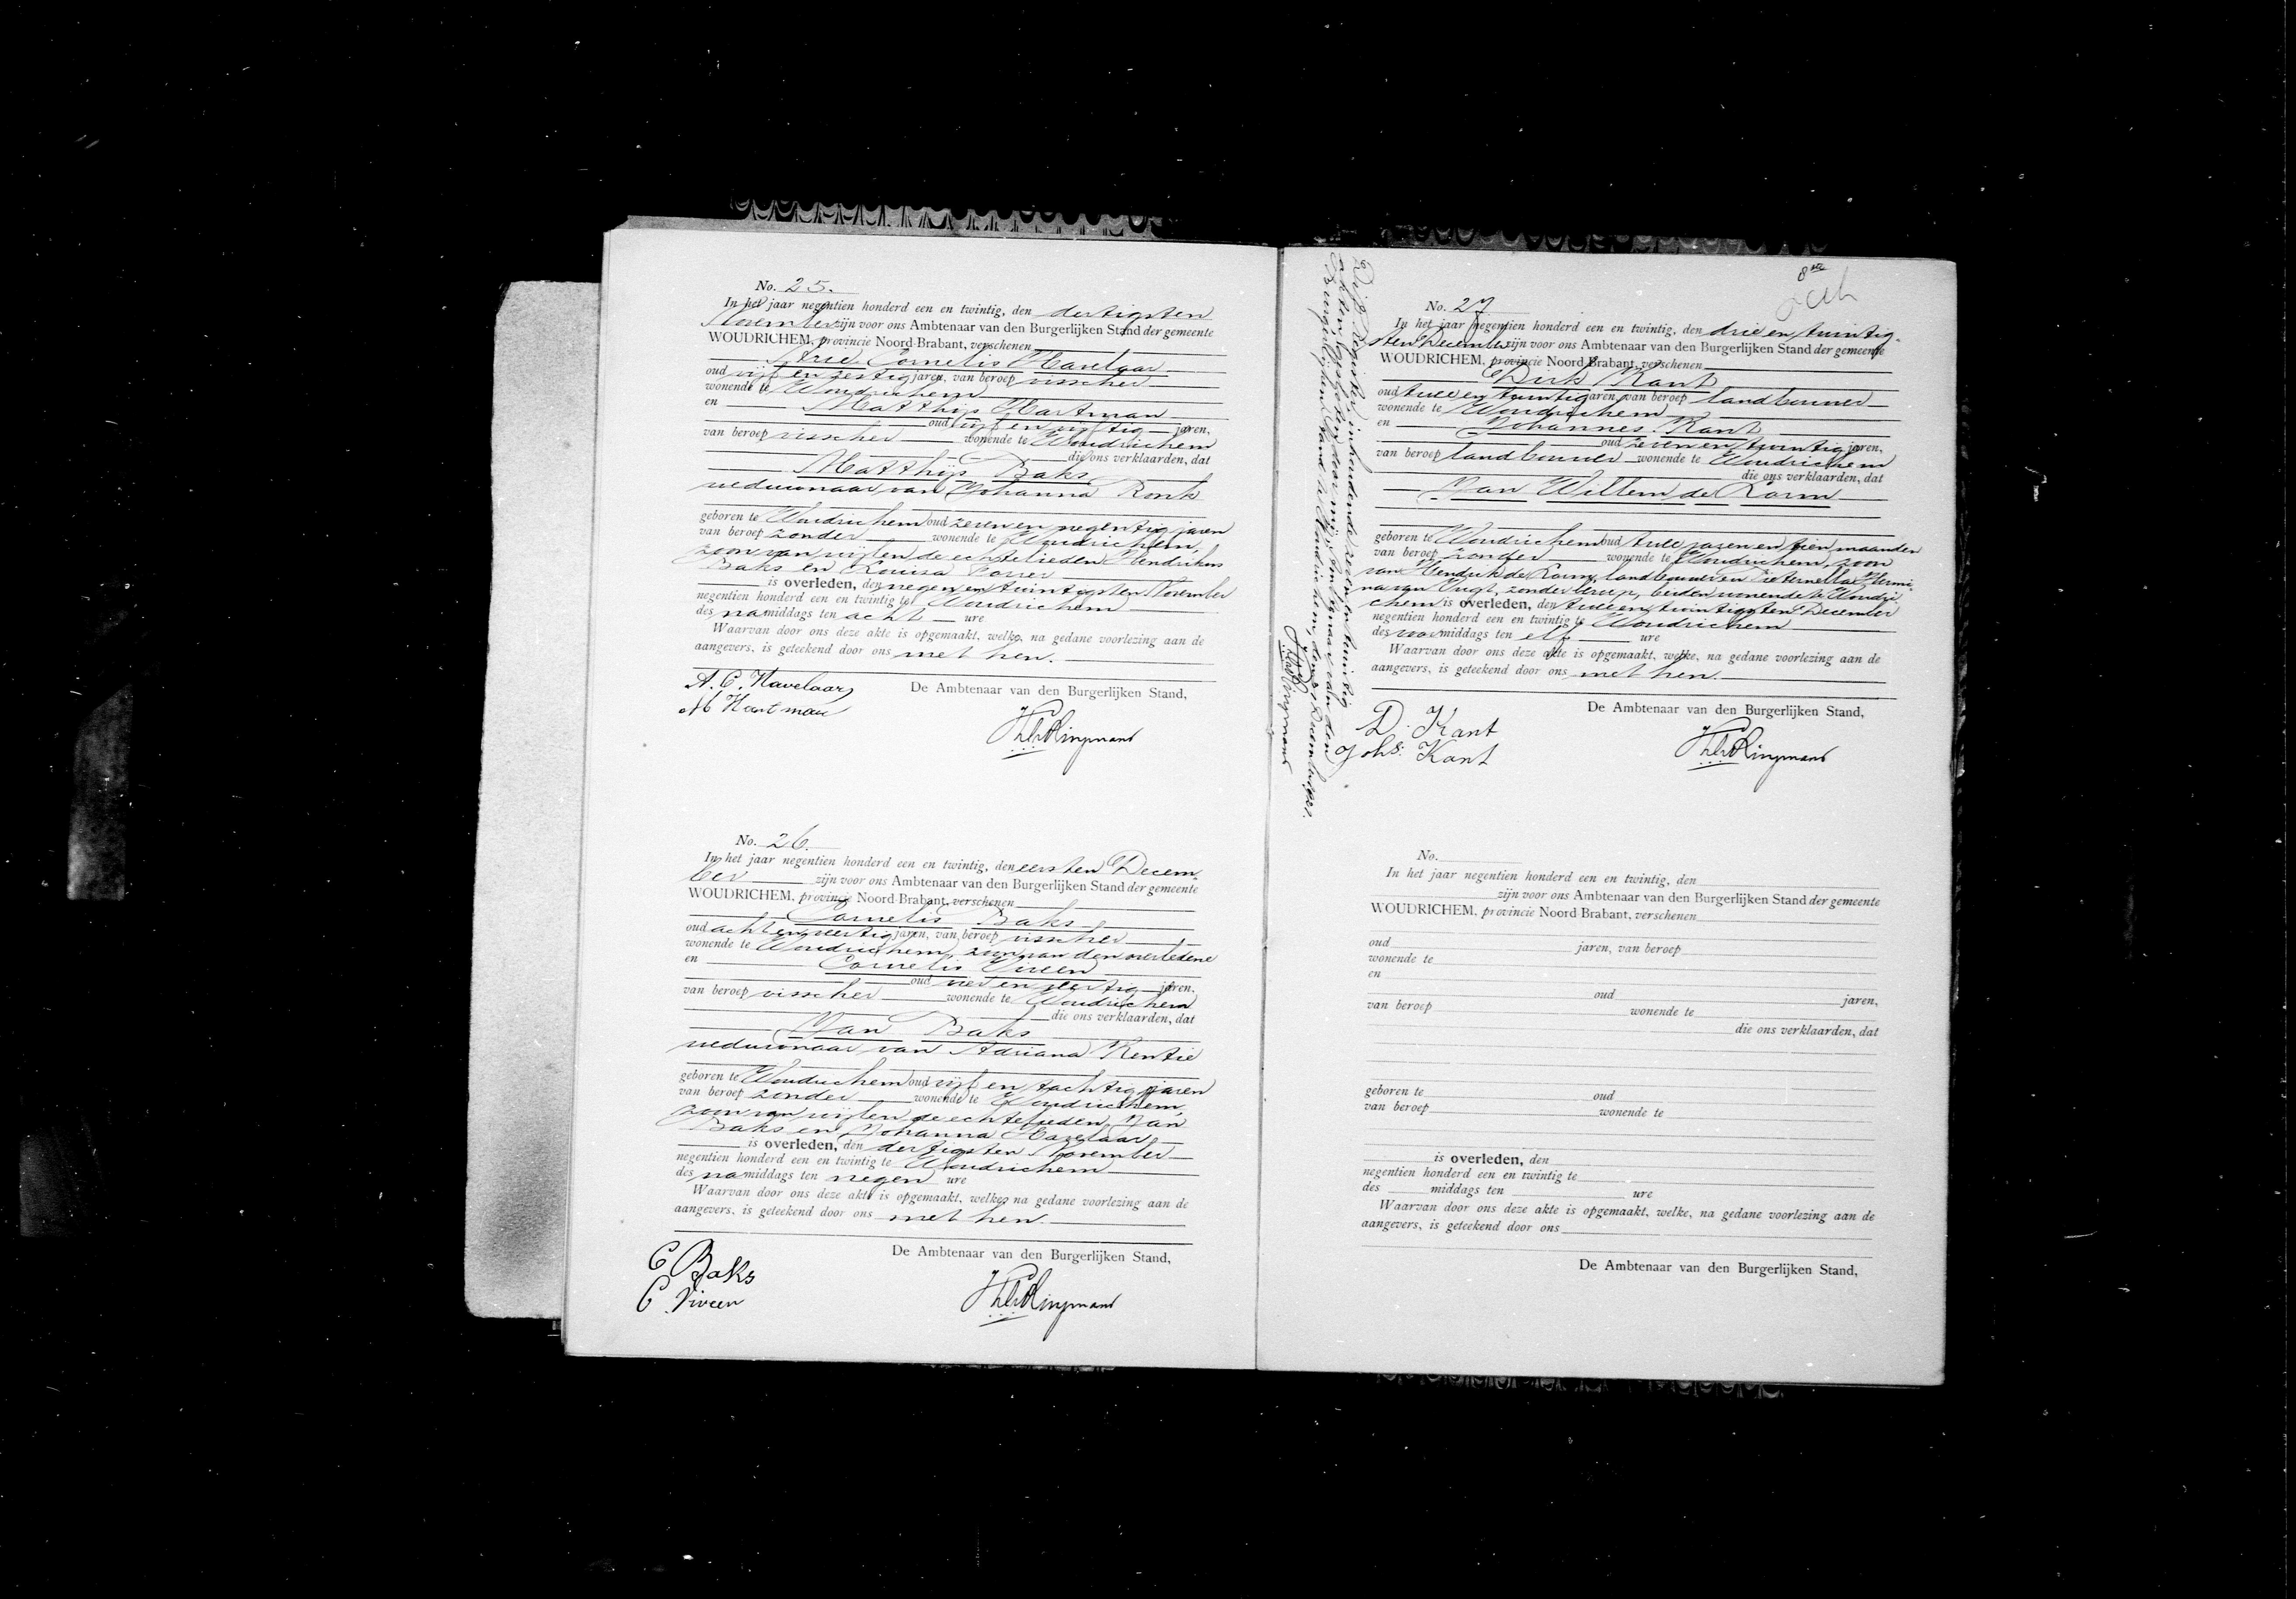 No. 25.
In het jaar negentien honderd een en twintig, den dertigsten
November zijn voor ons Ambtenaar van den Burgerlijken Stand der gemeente
WOUDRICHEM, provincie Noord-Brabant, verschenen
Arie Cornelis Havelaar
oud vijf en zestig jaren, van beroep visscher
wonende te Woudrichem
en Matthijs Hartman
oud vijf en vijftig jaren,
van beroep visscher wonende te Woudrichem
die ons verklaarden, dat
Matthijs Baks
weduwnaar van Johanna Ronk
geboren te Woudrichem oud zeven en negentig jaren
van beroep zonder wonende te Woudrichem,
zoon van wijlen de echtelieden Hendrikus
Baks en Louisa
is overleden, den negen en twintigsten November
negentien honderd een en twintig te Woudrichem
des namiddags ten acht ure
Waarvan door ons deze akte is opgemaakt, welke, na gedane voorlezing aan de
aangevers, is geteekend door ons met hen.
De Ambtenaar van den Burgerlijken Stand,
A. C. Havelaar
M Hartman
No. 26.
In het jaar negentien honderd een en twintig, den eersten Decem-
ber zijn voor ons Ambtenaar van den Burgerlijken Stand der gemeente
WOUDRICHEM, provincie Noord-Brabant, verschenen
Cornelis Baks
oud acht en veertig jaren, van beroep visscher
wonende te Woudrichem, zoon van den overledene
en Cornelis Viveen
oud vier en veertig jaren,
van beroep visscher wonende te Woudrichem
die ons verklaarden, dat
Jan Baks
weduwnaar van Adriana Kentie
geboren te Woudrichem oud vijf en tachtig jaren
van beroep zonder wonende te Woudrichem,
zoon van wijlen de echtelieden Jan
Baks en Johanna Havelaar
is overleden, den dertigsten November
negentien honderd een en twintig te Woudrichem
des namiddags ten negen ure
Waarvan door ons deze akte is opgemaakt, welke, na gedane voorlezing aan de
aangevers, is geteekend door ons met hen.
De Ambtenaar van den Burgerlijken Stand,
C Baks
C. Viveen
Dit Register, inhoudende zeven en twintig
akten, is gesloten door mij, Ambtenaar van den
Burgerlijken Stand te Woudrichem, den 31 December 1921.
8ste
No. 27
In het jaar negentien honderd een en twintig, den drie en twintig-
sten December zijn voor ons Ambtenaar van den Burgerlijken Stand der gemeente
WOUDRICHEM, provincie Noord-Brabant, verschenen
Dirk Kant
oud twee en twintig jaren, van beroep landbouwer
wonende te Woudrichem
en Johannes Kant
oud zeven en twintig jaren,
van beroep landbouwer wonende te Woudrichem
die ons verklaarden, dat
Jan Willem de Korm
geboren te Woudrichem oud twee jaren en tien maanden
van beroep zonder wonende te Woudrichem, zoon
van Hendrik de Korm, landbouwer en Pieternella Hermi-
na van Vugt, zonder beroep, beiden wonende te Woudri-
chem is overleden, den twee en twintigsten December
negentien honderd een en twintig te Woudrichem
des voormiddags ten elf ure
Waarvan door ons deze akte is opgemaakt, welke, na gedane voorlezing aan de
aangevers, is geteekend door ons met hen.
De Ambtenaar van den Burgerlijken Stand,
D. Kant
Johs. Kant
No.
In het jaar negentien honderd een en twintig, den
zijn voor ons Ambtenaar van den Burgerlijken Stand der gemeente
WOUDRICHEM, provincie Noord-Brabant, verschenen
oud jaren, van beroep
wonende te
en
oud jaren,
van beroep wonende te
die ons verklaarden, dat
geboren te oud
van beroep wonende te
is overleden, den
negentien honderd een en twintig te
des middags ten ure
Waarvan door ons deze akte is opgemaakt, welke, na gedane voorlezing aan de
aangevers, is geteekend door ons
De Ambtenaar van den Burgerlijken Stand,